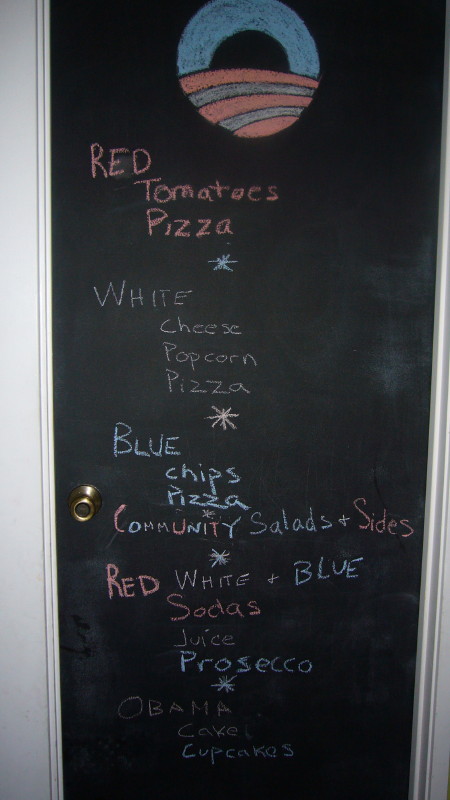 RED
Tomatoes
Pizza
WHITE
Cheese
Popcorn
Pizza
BLUE
chips
Pizza
COMMUNITY Salads + Sides
RED WHITE + BLUE
Sodas
Juice
Prosecco
OBAMA
Cake
Cupcakes